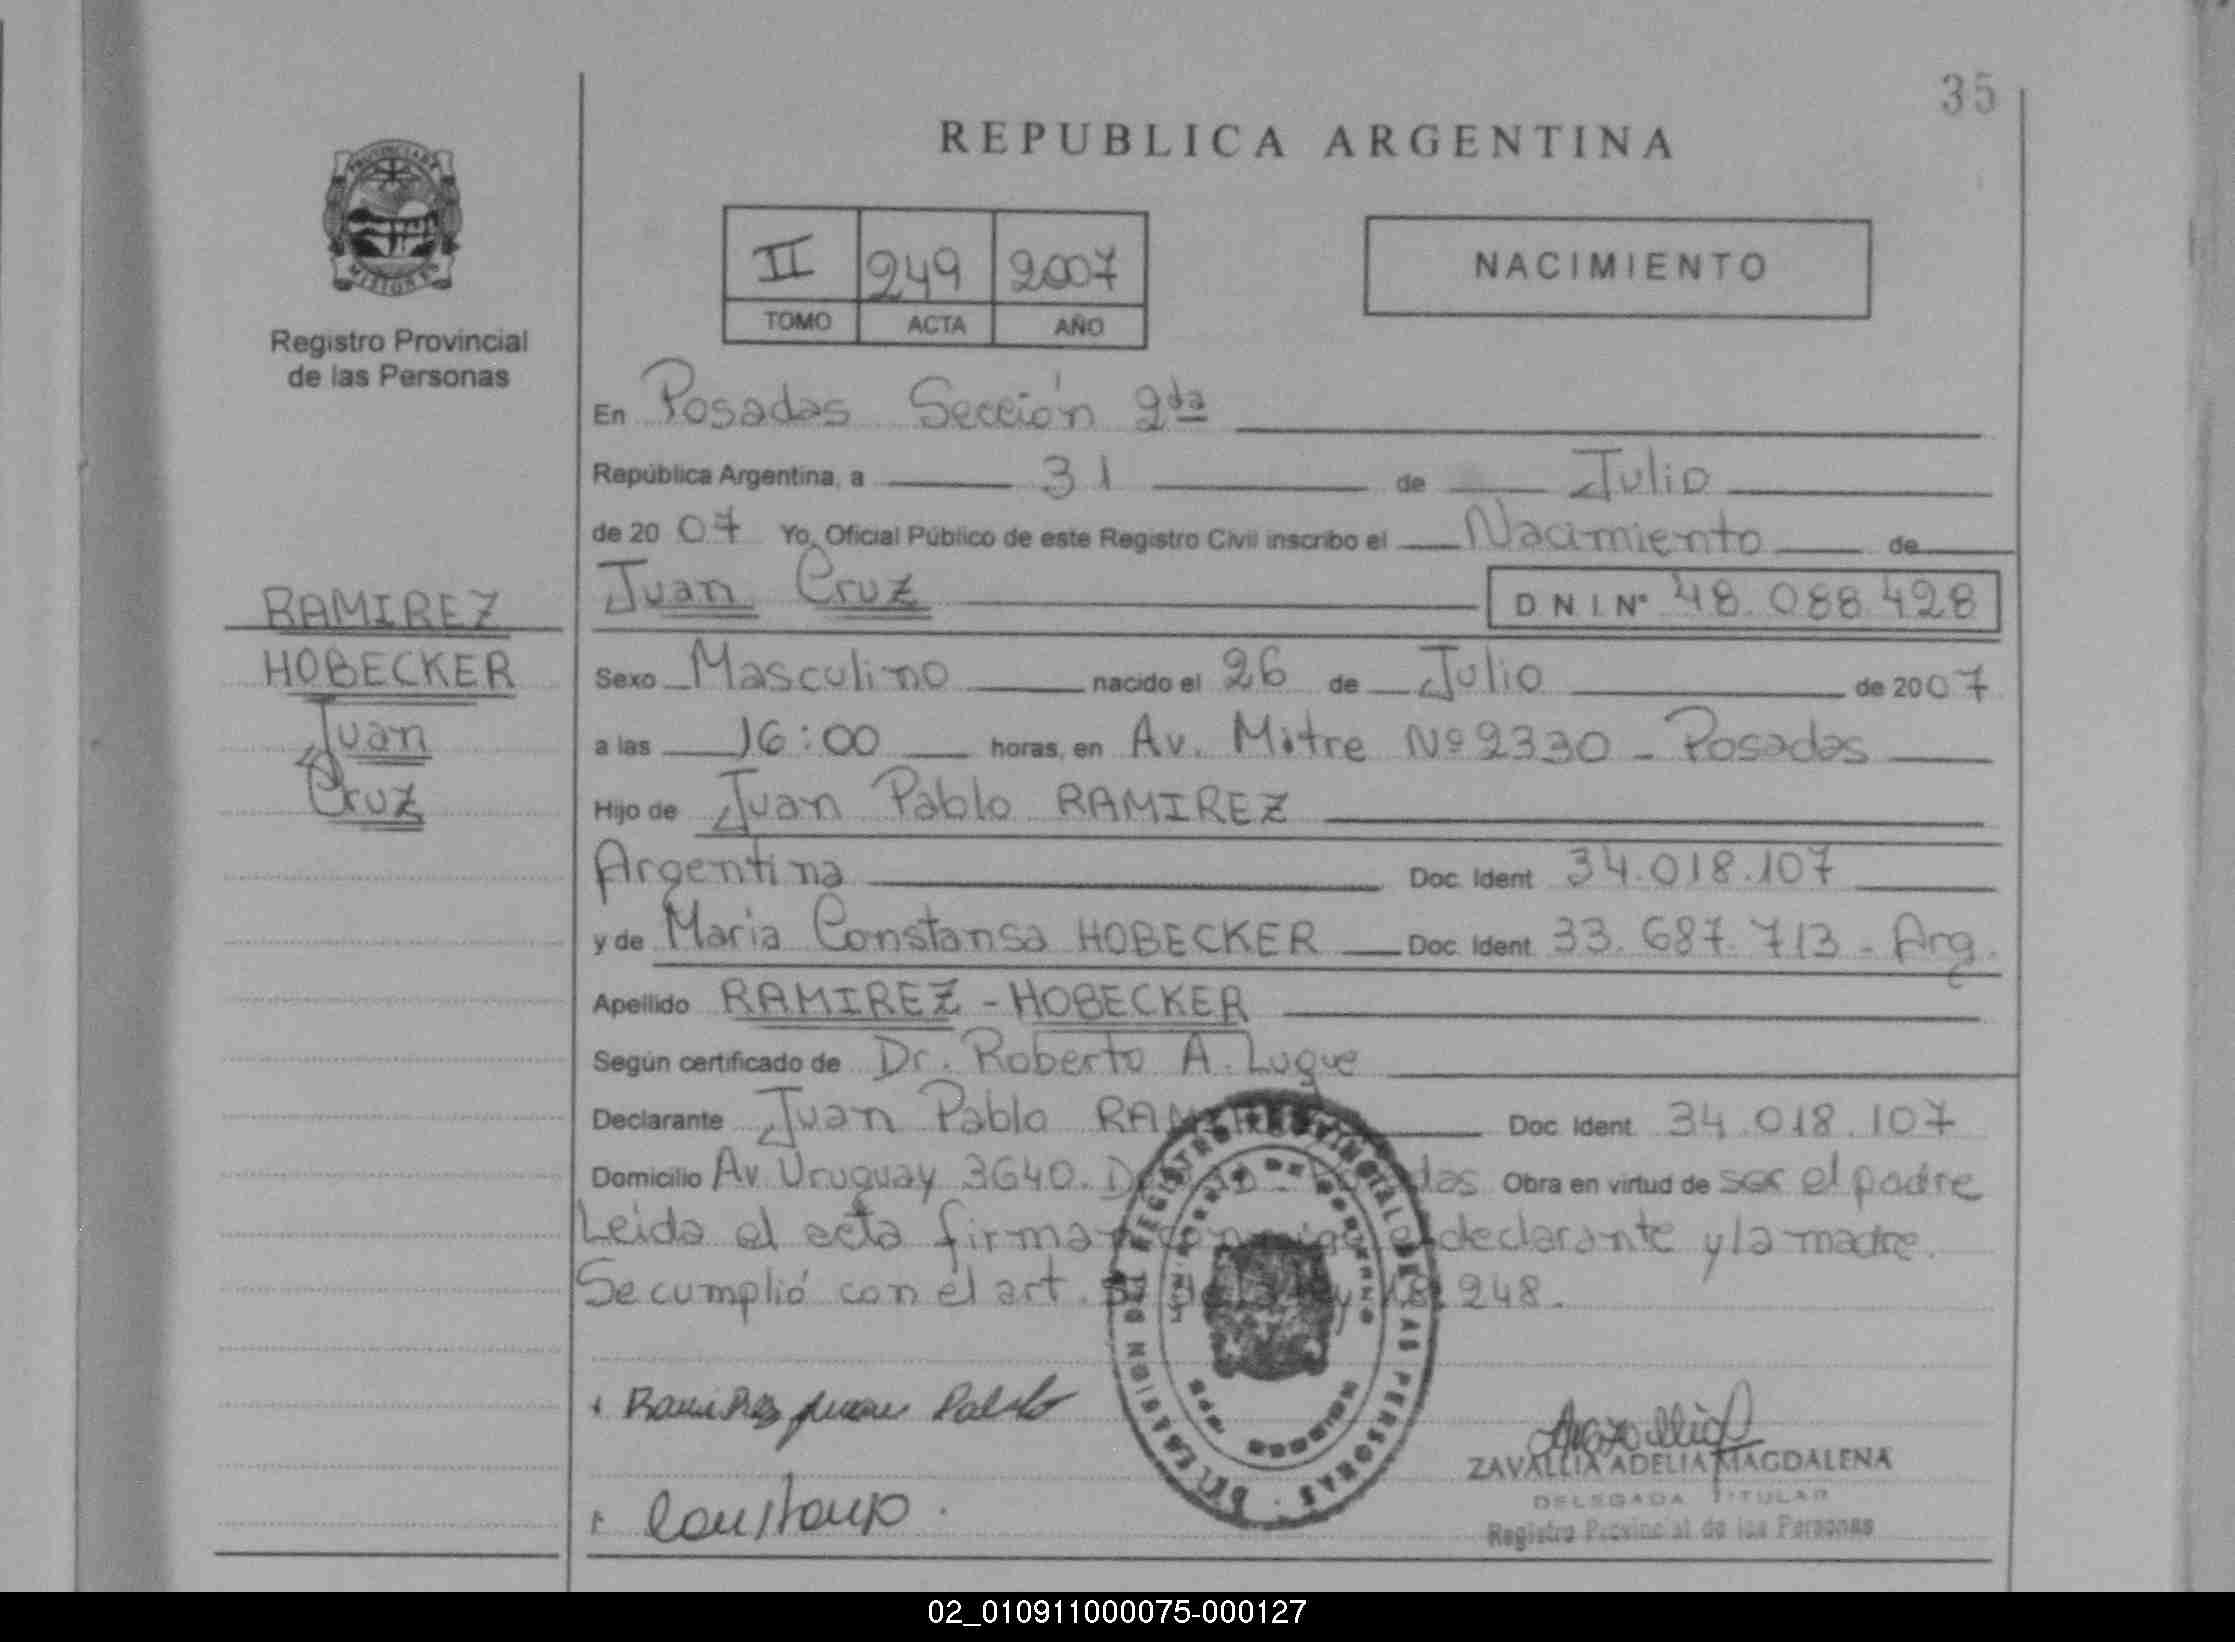 35
REPUBLICA ARGENTINA
PROVINCIA DE
MISIONES
Registro Provincial
de las Personas
II 249 2007
TOMO ACTA AÑO
NACIMIENTO
En Posadas Sección 2da
República Argentina, a 31 de Julio
de 2007 Yo, Oficial Público de este Registro Civil inscribo el Nacimiento de
Juan Cruz DNI Nº 48.088.428
RAMIREZ
HOBECKER
Juan
Cruz
Sexo Masculino nacido el 26 de Julio de 2007
a las 16:00 horas, en Av. Mitre Nº 2330 - Posadas
Hijo de Juan Pablo RAMIREZ
Argentina Doc. Ident 34.018.107
y de Maria Constansa HOBECKER Doc. Ident. 33.687.713 - Arg.
Apellido RAMIREZ - HOBECKER
Según certificado de Dr. Roberto A. Luque
Declarante Juan Pablo Doc. Ident. 34.018.107
Domicilio Av. Uruguay 3640. Obra en virtud de ser el padre
Leida el acta declarante y la madre.
Se cumplió con el art. 18.248.
REGISTRO PROVINCIAL DE LAS PERSONAS
Ramirez Juan Pablo
ZAVALLIA ADELIA MAGDALENA
DELEGADA TITULAR
Registro Provincial de las Personas
02_010911000075-000127